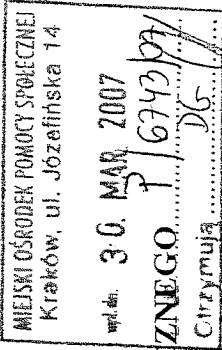 MIEJSKI OŚRODEK POMOCY SPOŁECZNEJ
Kraków, ul. Józefińska 14
wpł. dn. 30. MAR. 2007
P/6743/07
ZNEGO
DG
Otrzymują